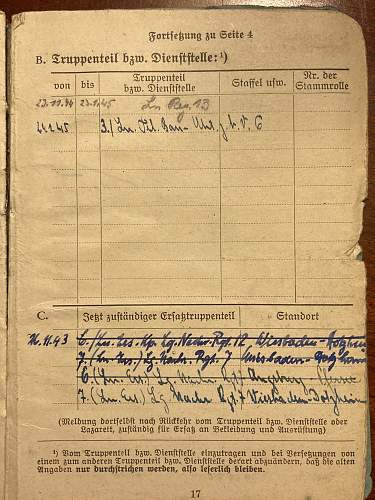 Fortsetzung zu Seite 4
B. Truppenteil bzw. Dienststelle:¹)
von bis Truppenteil bzw. Dienststelle Staffel usw. Nr. der Stammrolle
23.11.44 23.1.45 Ln. Reg. 13
24.1.45 3./Ln. Bau-
C. Jetzt zuständiger Ersatztruppenteil Standort
11.43 Lg. Nachr. Rgt. 12 Wiesbaden-Dotzheim
7. (Ln. Ers.) Lg. Nachr. Rgt. 7 Wiesbaden-Dotzheim
6. (Ln. Ers.) Lg. Nachr. Rgt. Augsburg-
7. (Ln. Ers.) Lg. Nachr. Rgt. 7 Wiesbaden-Dotzheim
(Meldung dortselbst nach Rückkehr vom Truppenteil bzw. Dienststelle oder
Lazarett, zuständig für Ersatz an Bekleidung und Ausrüstung)
¹) Vom Truppenteil bzw. Dienststelle einzutragen und bei Versetzungen von
einem zum anderen Truppenteil bzw. Dienststelle derart abzuändern, daß die alten
Angaben nur durchstrichen werden, also leserlich bleiben.
17